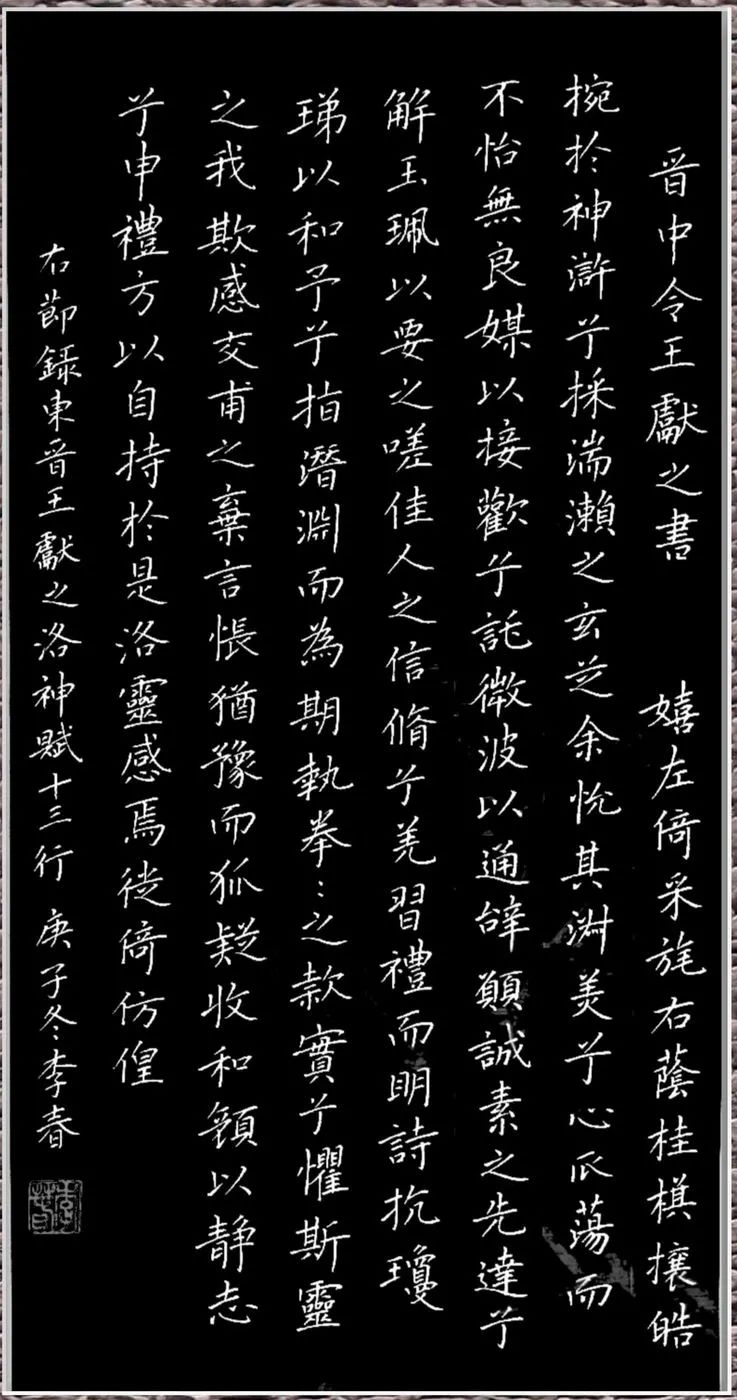 晉中令王獻之書 嬉左倚采旄右蔭桂棋攘皓
捥於神滸兮採湍瀨之玄芝余悅其淑美兮心蕩而
不怡無良媒以接歡兮託微波以通辝願誠素之先達兮
解玉珮以要之嗟佳人之信脩兮羌習禮而明詩抗瓊
珶以和予兮指潛淵而為期執拳〻之款實兮懼斯靈
之我欺感交甫之棄言悵猶豫而狐疑收和顏以靜志
兮申禮方以自持於是洛靈感焉徙倚仿偟
右節錄東晉王獻之洛神賦十三行 庚子冬李春